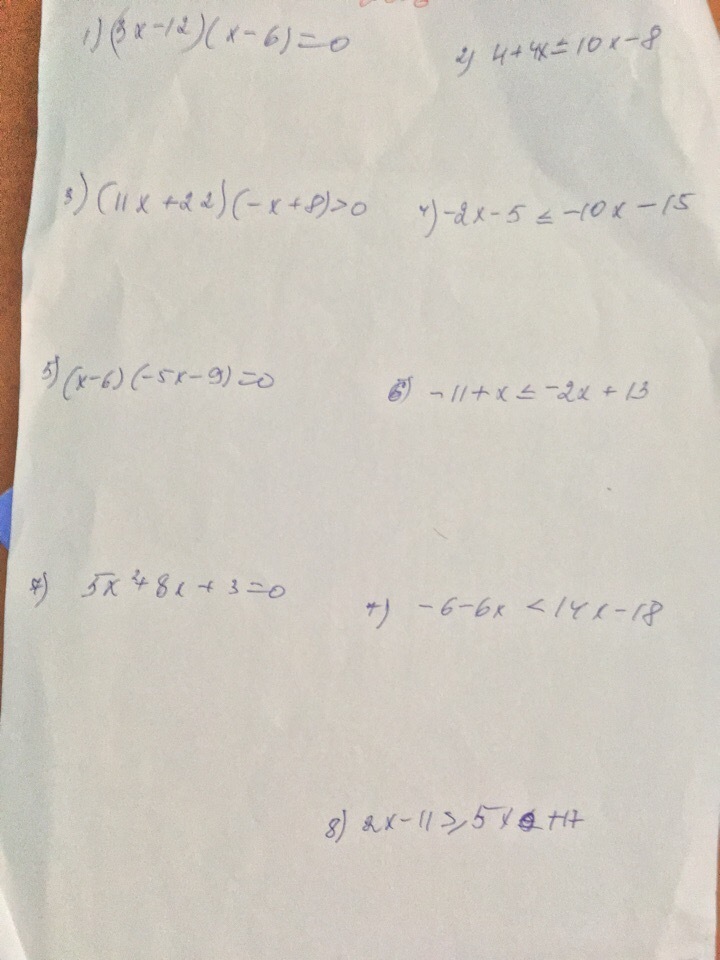 1) (3x-12)(x-6)=0
2) 4+4x≤10x-8
3) (11x+22)(-x+8)>0
4) -2x-5≤-10x-15
5) (x-6)(-5x-9)=0
6) -11+x≤-2x+13
7) 5x²+8x+3=0
7) -6-6x<14x-18
8) 2x-11≥5x+17